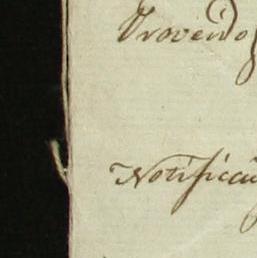 Provendo
Notificaç